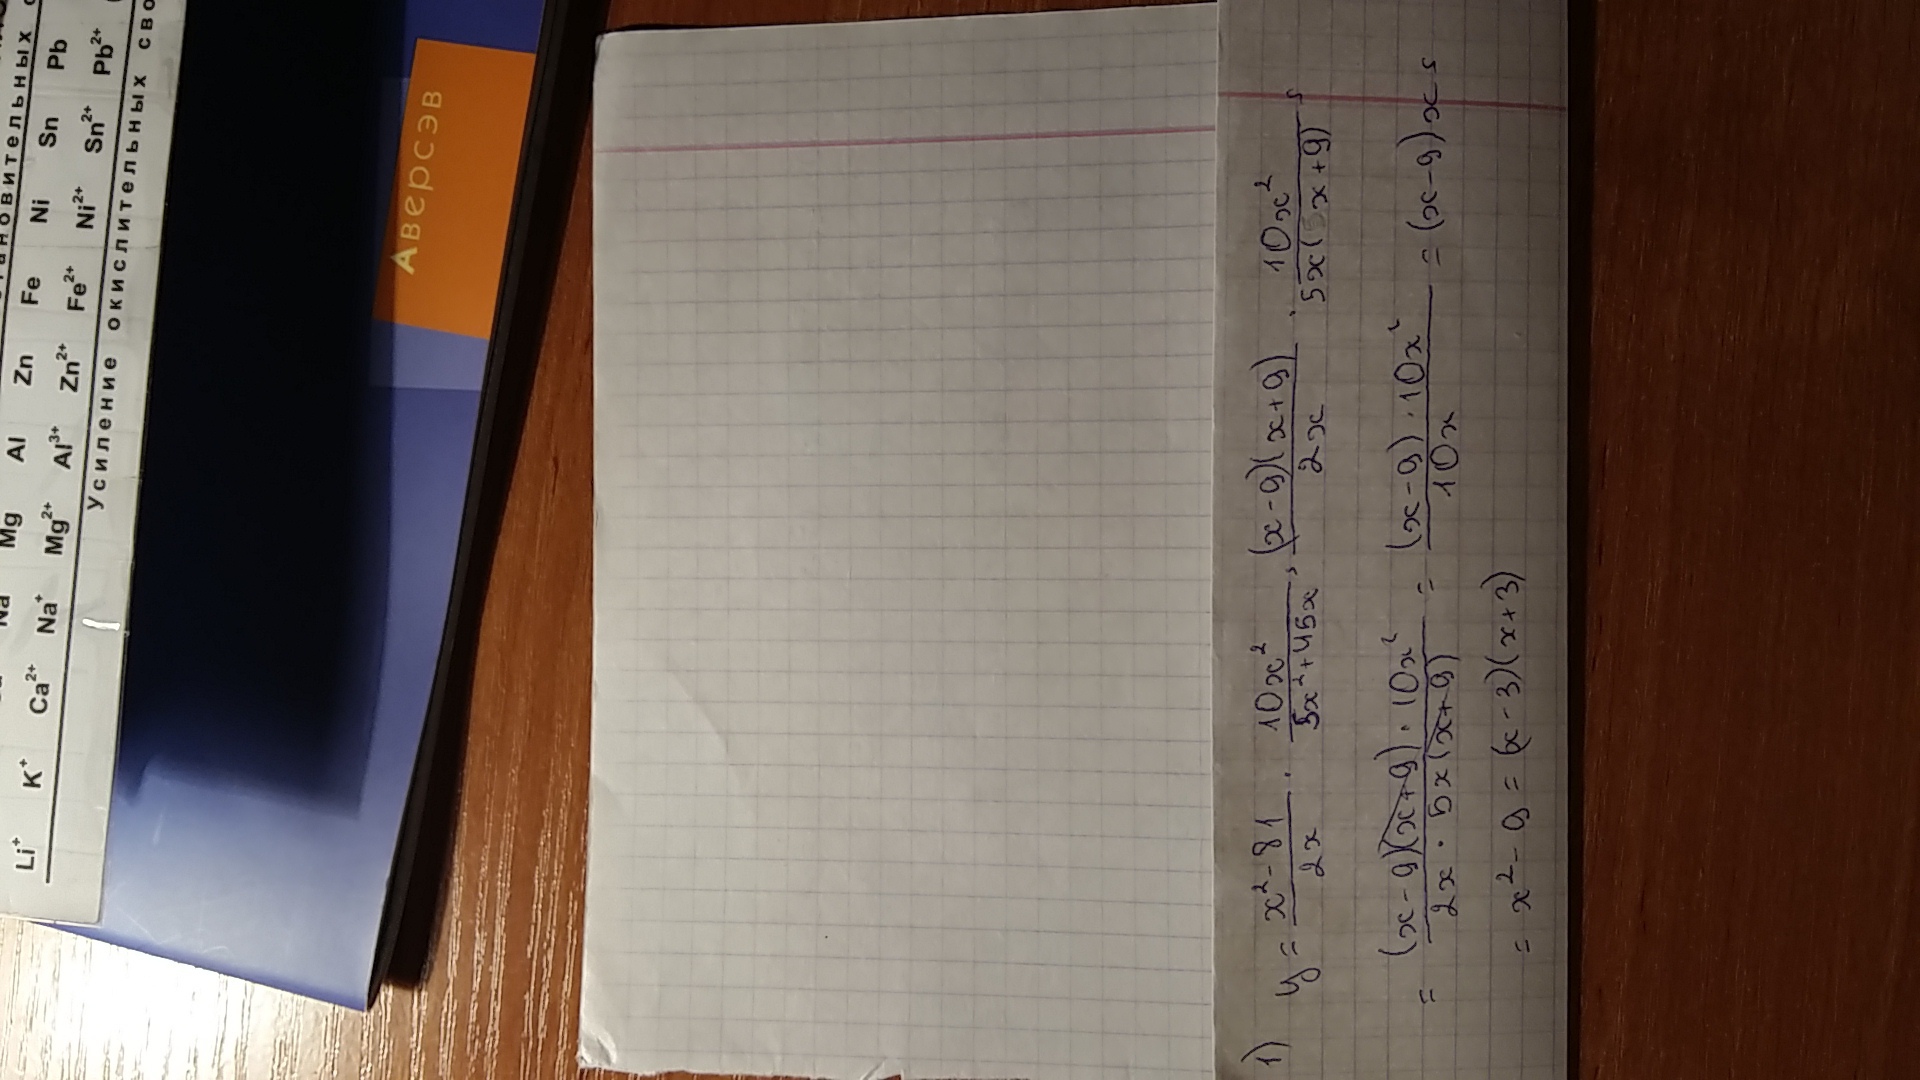 Li⁺ K⁺ Ca²⁺ Na⁺ Mg²⁺ Al³⁺ Zn²⁺ Fe²⁺ Ni²⁺ Sn²⁺ Pb²⁺
Mg Al Zn Fe Ni Sn Pb
Усиление окислительных
Аверсэв
1) y = (x² - 81)/(2x) · 10x²/(5x² + 45x) = (x - 9)(x + 9)/(2x) · 10x²/(5x(x + 9)) =
= (x - 9)(x + 9) · 10x²/(2x · 5x(x + 9)) = (x - 9) · 10x²/(10x) = (x - 9)x =
= x² - 9 = (x - 3)(x + 3)